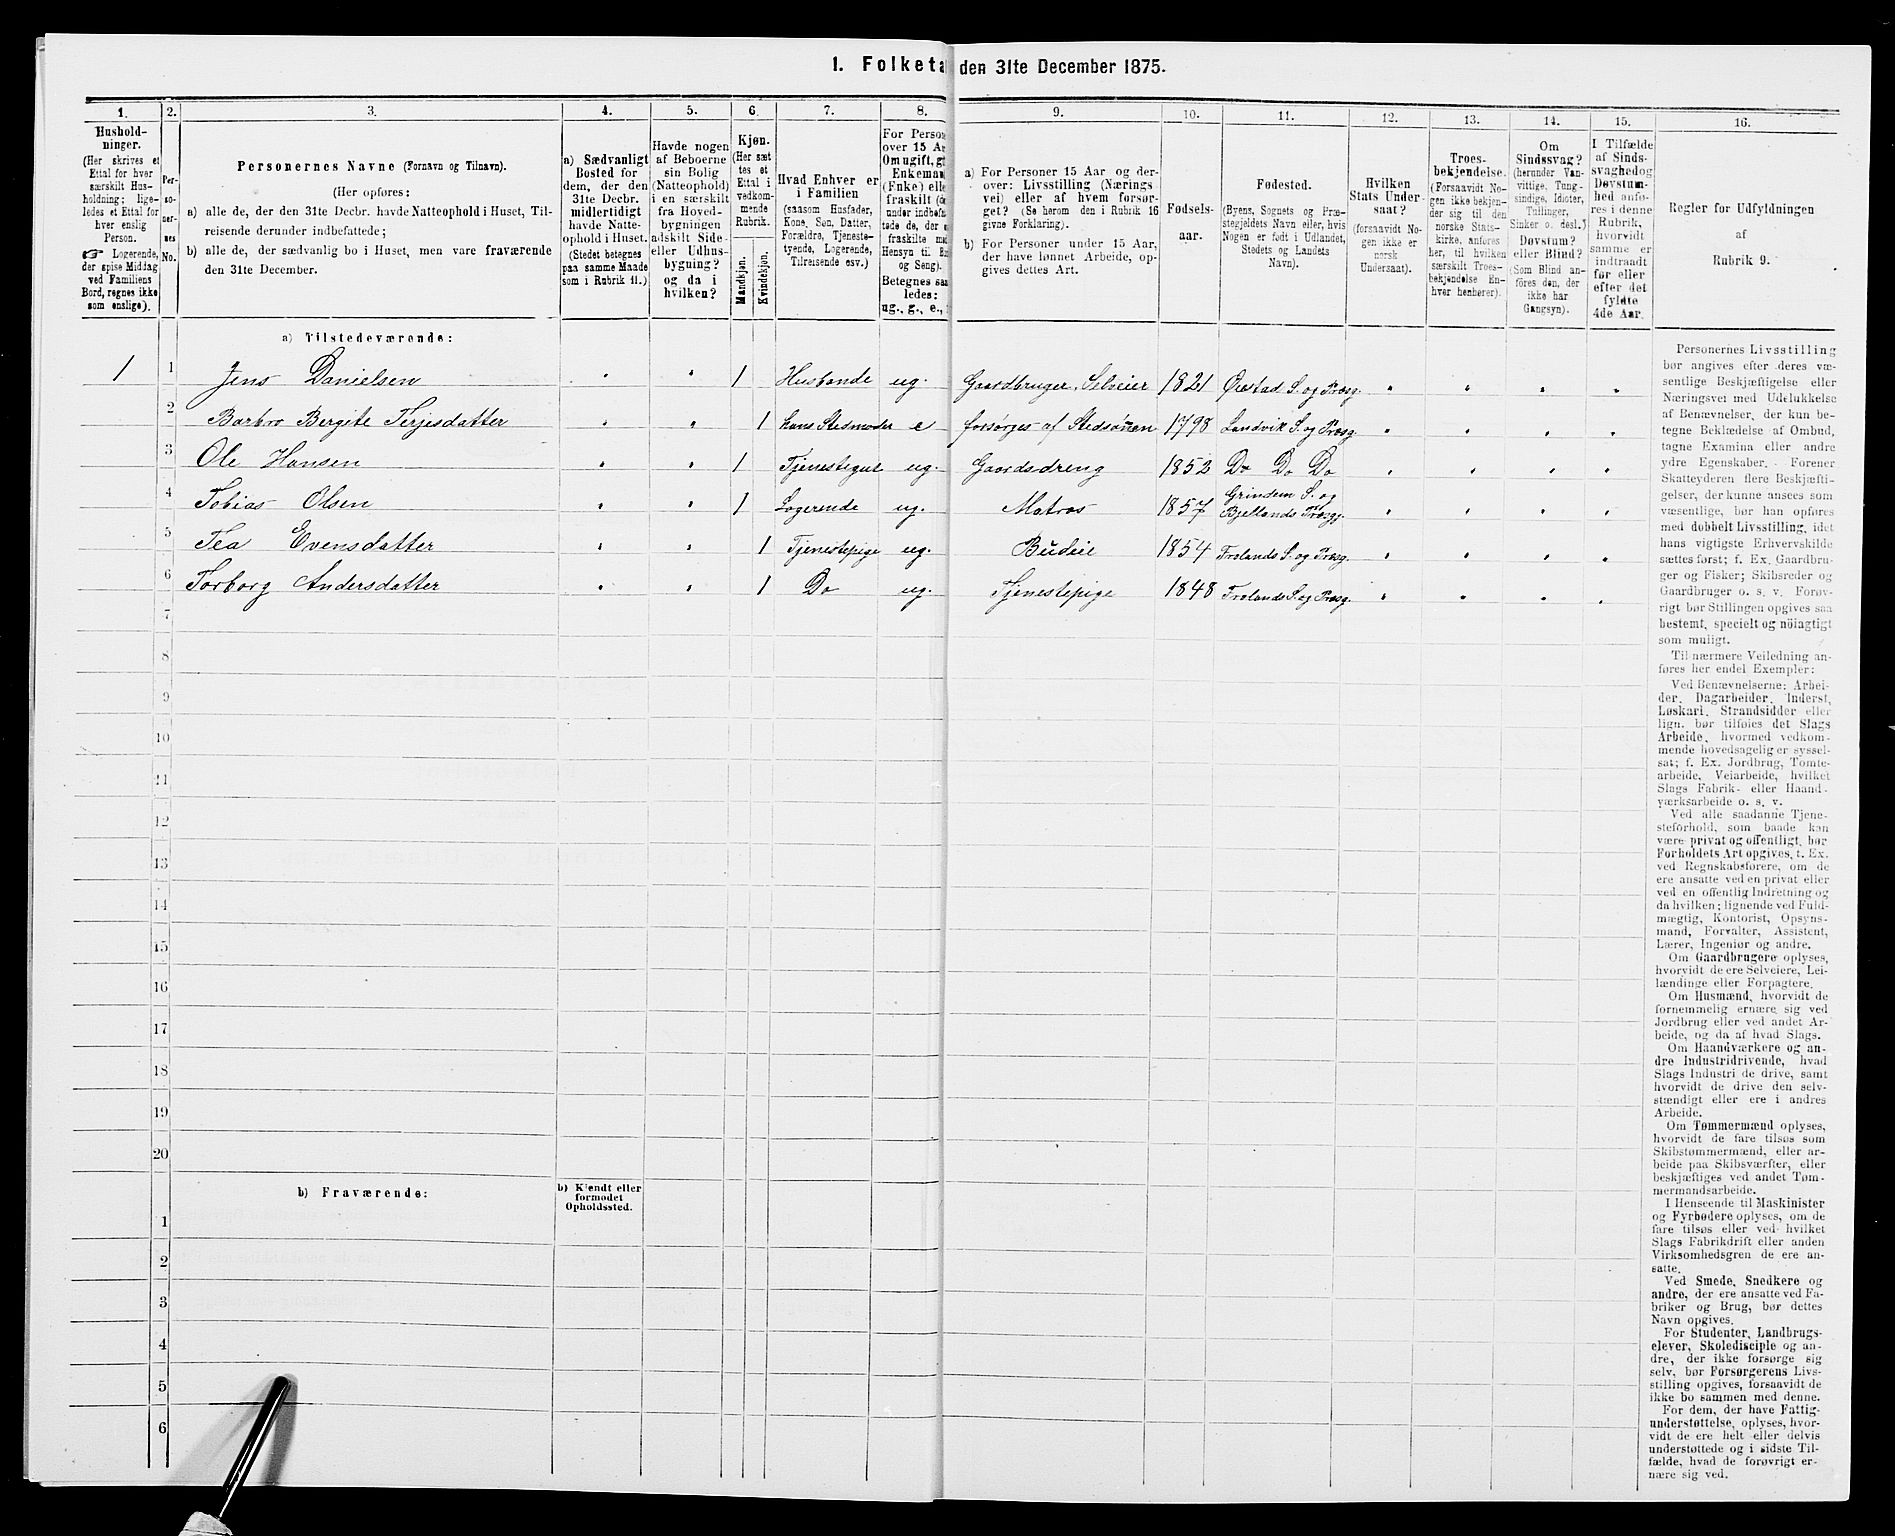 1. Folketa den 31te December 1875.
1. 2. 3. 4. 5. 6. 7. 8. 9. 10. 11. 12. 13. 14. 15. 16.
Hushold-
ninger.
(Her skrives et
Ettal for hver
særskilt Hus-
holdning; lige-
ledes et Ettal for
hver enslig
Person.
☞ Logerende,
der spise Middag
ved Familiens
Bord, regnes ikke
som enslige).
Per-
so-
ner-
nes
No.
Personernes Navne (Fornavn og Tilnavn).
(Her opføres:
a) alle de, der den 31te Decbr. havde Natteophold i Huset, Til-
reisende derunder indbefattede;
b) alle de, der sædvanlig bo i Huset, men vare fraværende
den 31te December.
a) Sædvanligt
Bosted for
dem, der den
31te Decbr.
midlertidigt
havde Natte-
ophold i Huset.
(Stedet betegnes
paa samme Maade
som i Rubrik 11.)
Havde nogen
af Beboerne
sin Bolig
(Natteophold)
i en særskilt
fra Hoved-
bygningen
adskilt Side-
eller Udhus-
bygning?
og da i
hvilken?
Kjøn.
(Her sæt
tes et
Ettal i
vedkom-
mende
Rubrik.
Mandkjøn.
Kvindekjøn.
Hvad Enhver er
i Familien
(saasom Husfader,
Kone, Søn, Datter,
Forældre, Tjeneste-
tyende, Logerende,
Tilreisende osv.)
For Person
over 15 Aa
Om ugift, gi
Enkeman
(Enke) elle
fraskilt (
under indbefat
tede de, der
fraskilte me
Hensyn til B
og Seng).
Betegnes saa
ledes:
ug., g., e.,
a) For Personer 15 Aar og der-
over: Livsstilling (Nærings
vei) eller af hvem forsør-
get? (Se herom den i Rubrik 16
givne Forklaring).
b) For Personer under 15 Aar,
der have lønnet Arbeide, op-
gives dettes Art.
Fødsels-
aar.
Fødested.
(Byens, Sognets og Præ-
stegjeldets Navn eller, hvis
Nogen er født i Udlandet,
Stedets og Landets
Navn).
Hvilken
Stats Under-
saat?
(forsaavidt No-
gen ikke er
norsk
Undersaat).
Troes-
bekjendelse.
(Forsaavidt No-
gen ikke bekjen-
der sig til den
norske Stats-
kirke, anføres
her, til hvilken
særskilt Troes-
bekjendelse En-
hver henhører).
Om
Sindssvag?
(herunder Van-
vittige, Tung-
sindige, Idioter,
Tullinger,
Sinker o. desl.)
Døvstum?
eller Blind?
(Som Blind an-
føres den, der
ikke har
Gangsyn).
I Tilfælde
af Sinds-
svaghed og
Døvstum-
hed anfø-
res i denne
Rubrik,
hvorvidt
samme er
indtraadt
før eller
efter det
fyldte
4de Aar.
Regler for Udfyldningen
af
Rubrik 9.
a) Tilstedeværende:
1 1 Jens Danielsen 1 Husbonde ug. Gaardbruger, Selveier 1821 Øiestad S. og Præsg.
2 Barbro Bergite Terjesdatter 1 hans Stedmoder e forsørges af Stedsønnen 1798 Landvik S. og Præsg
3 Ole Hansen 1 Tjenestegut ug. Gaardsdreng 1852 Do Do Do
4 Tobias Olsen 1 Logerende ug. Matros 1857 Grindem S. og
Bjellands Præsgj.
5 Tea Evensdatter 1 Tjenestepige ug. Budeie 1854 Frolands S. og Præsg.
6 Torborg Andersdatter 1 Do ug. Tjenestepige 1848 Frolands S. og Præsg.
7
8
9
10
11
12
13
14
15
16
17
18
19
20
b) Fraværende:
b) Kjendt eller
formodet
Opholdssted.
1
2
3
4
5
6
Personernes Livsstilling
bør angives efter deres væ-
sentlige Beskjæftigelse eller
Næringsvei med Udelukkelse
af Benævnelser, der kun be-
tegne Beklædelse af Ombud,
tagne Examina eller andre
ydre Egenskaber. Forener
Skatteyderen flere Beskjæfti-
gelser, der kunne ansees som
væsentlige, bør han opføres
med dobbelt Livsstilling, idet
hans vigtigste Erhvervskilde
sættes først; f. Ex. Gaardbru-
ger og Fisker; Skibsreder og
Gaardbruger o. s. v. Forøv-
rigt bør Stillingen opgives saa
bestemt, specielt og nöiagtigt
som muligt.
Til nærmere Veiledning an-
føres her endel Exempler:
Ved Benævnelserne: Arbei-
der, Dagarbeider, Inderst,
Løskarl, Strandsidder eller
lign. bør tilføies det Slags
Arbeide, hvormed vedkom-
mende hovedsagelig er syssel-
sat; f. Ex. Jordbrug, Tomte-
arbeide, Veiarbeide, hvilket
Slags Fabrik- eller Haand-
værksarbeide o. s. v.
Ved alle saadanne Tjene-
steforhold, som baade kan
være privat og offentligt, bør
Forholdets Art opgives, t. Ex.
ved Regnskabsførere, om de
ere ansatte ved en privat eller
ved en offentlig Indretning og
da hvilken; lignende ved Fuld-
mægtig, Kontorist, Opsyns-
mand, Forvalter, Assistent,
Lærer, Ingeniør og andre.
Om Gaardbrugere oplyses,
hvorvidt de ere Selveiere, Lei-
lændinge eller Forpagtere.
Om Husmænd, hvorvidt de
fornemmelig ernære sig ved
Jordbrug eller ved andet Ar-
beide, og da af hvad Slags.
Om Haandværkere og an-
dre Industridrivende, hvad
Slags Industri de drive, samt
hvorvidt de drive den selv-
stændigt eller ere i andres
Arbeide.
Om Tømmermænd oplyses,
hvorvidt de fare tilsøs som
Skibstømmermænd, eller ar-
beide paa Skibsværfter, eller
beskjæftiges ved andet Tøm-
mermandsarbeide.
I Henseende til Maskinister
og Fyrbødere oplyses, om de
fare tilsøs eller ved hvilket
Slags Fabrikdrift eller anden
Virksomhedsgren de ere an-
satte.
Ved Smede, Snedkere og
andre, der ere ansatte ved Fa-
briker og Brug, bør dettes
Navn opgives.
For Studenter, Landbrugs-
elever, Skoledisciple og an-
dre, der ikke forsørge sig
selv, bør Forsørgerens Livs-
stilling opgives, forsaavidt de
ikke bo sammen med denne.
For dem, der have Fattig-
understøttelse, oplyses, hvor-
vidt de ere helt eller delvis
understøttede og i sidste Til-
fælde, hvad de forøvrigt er-
nære sig ved.